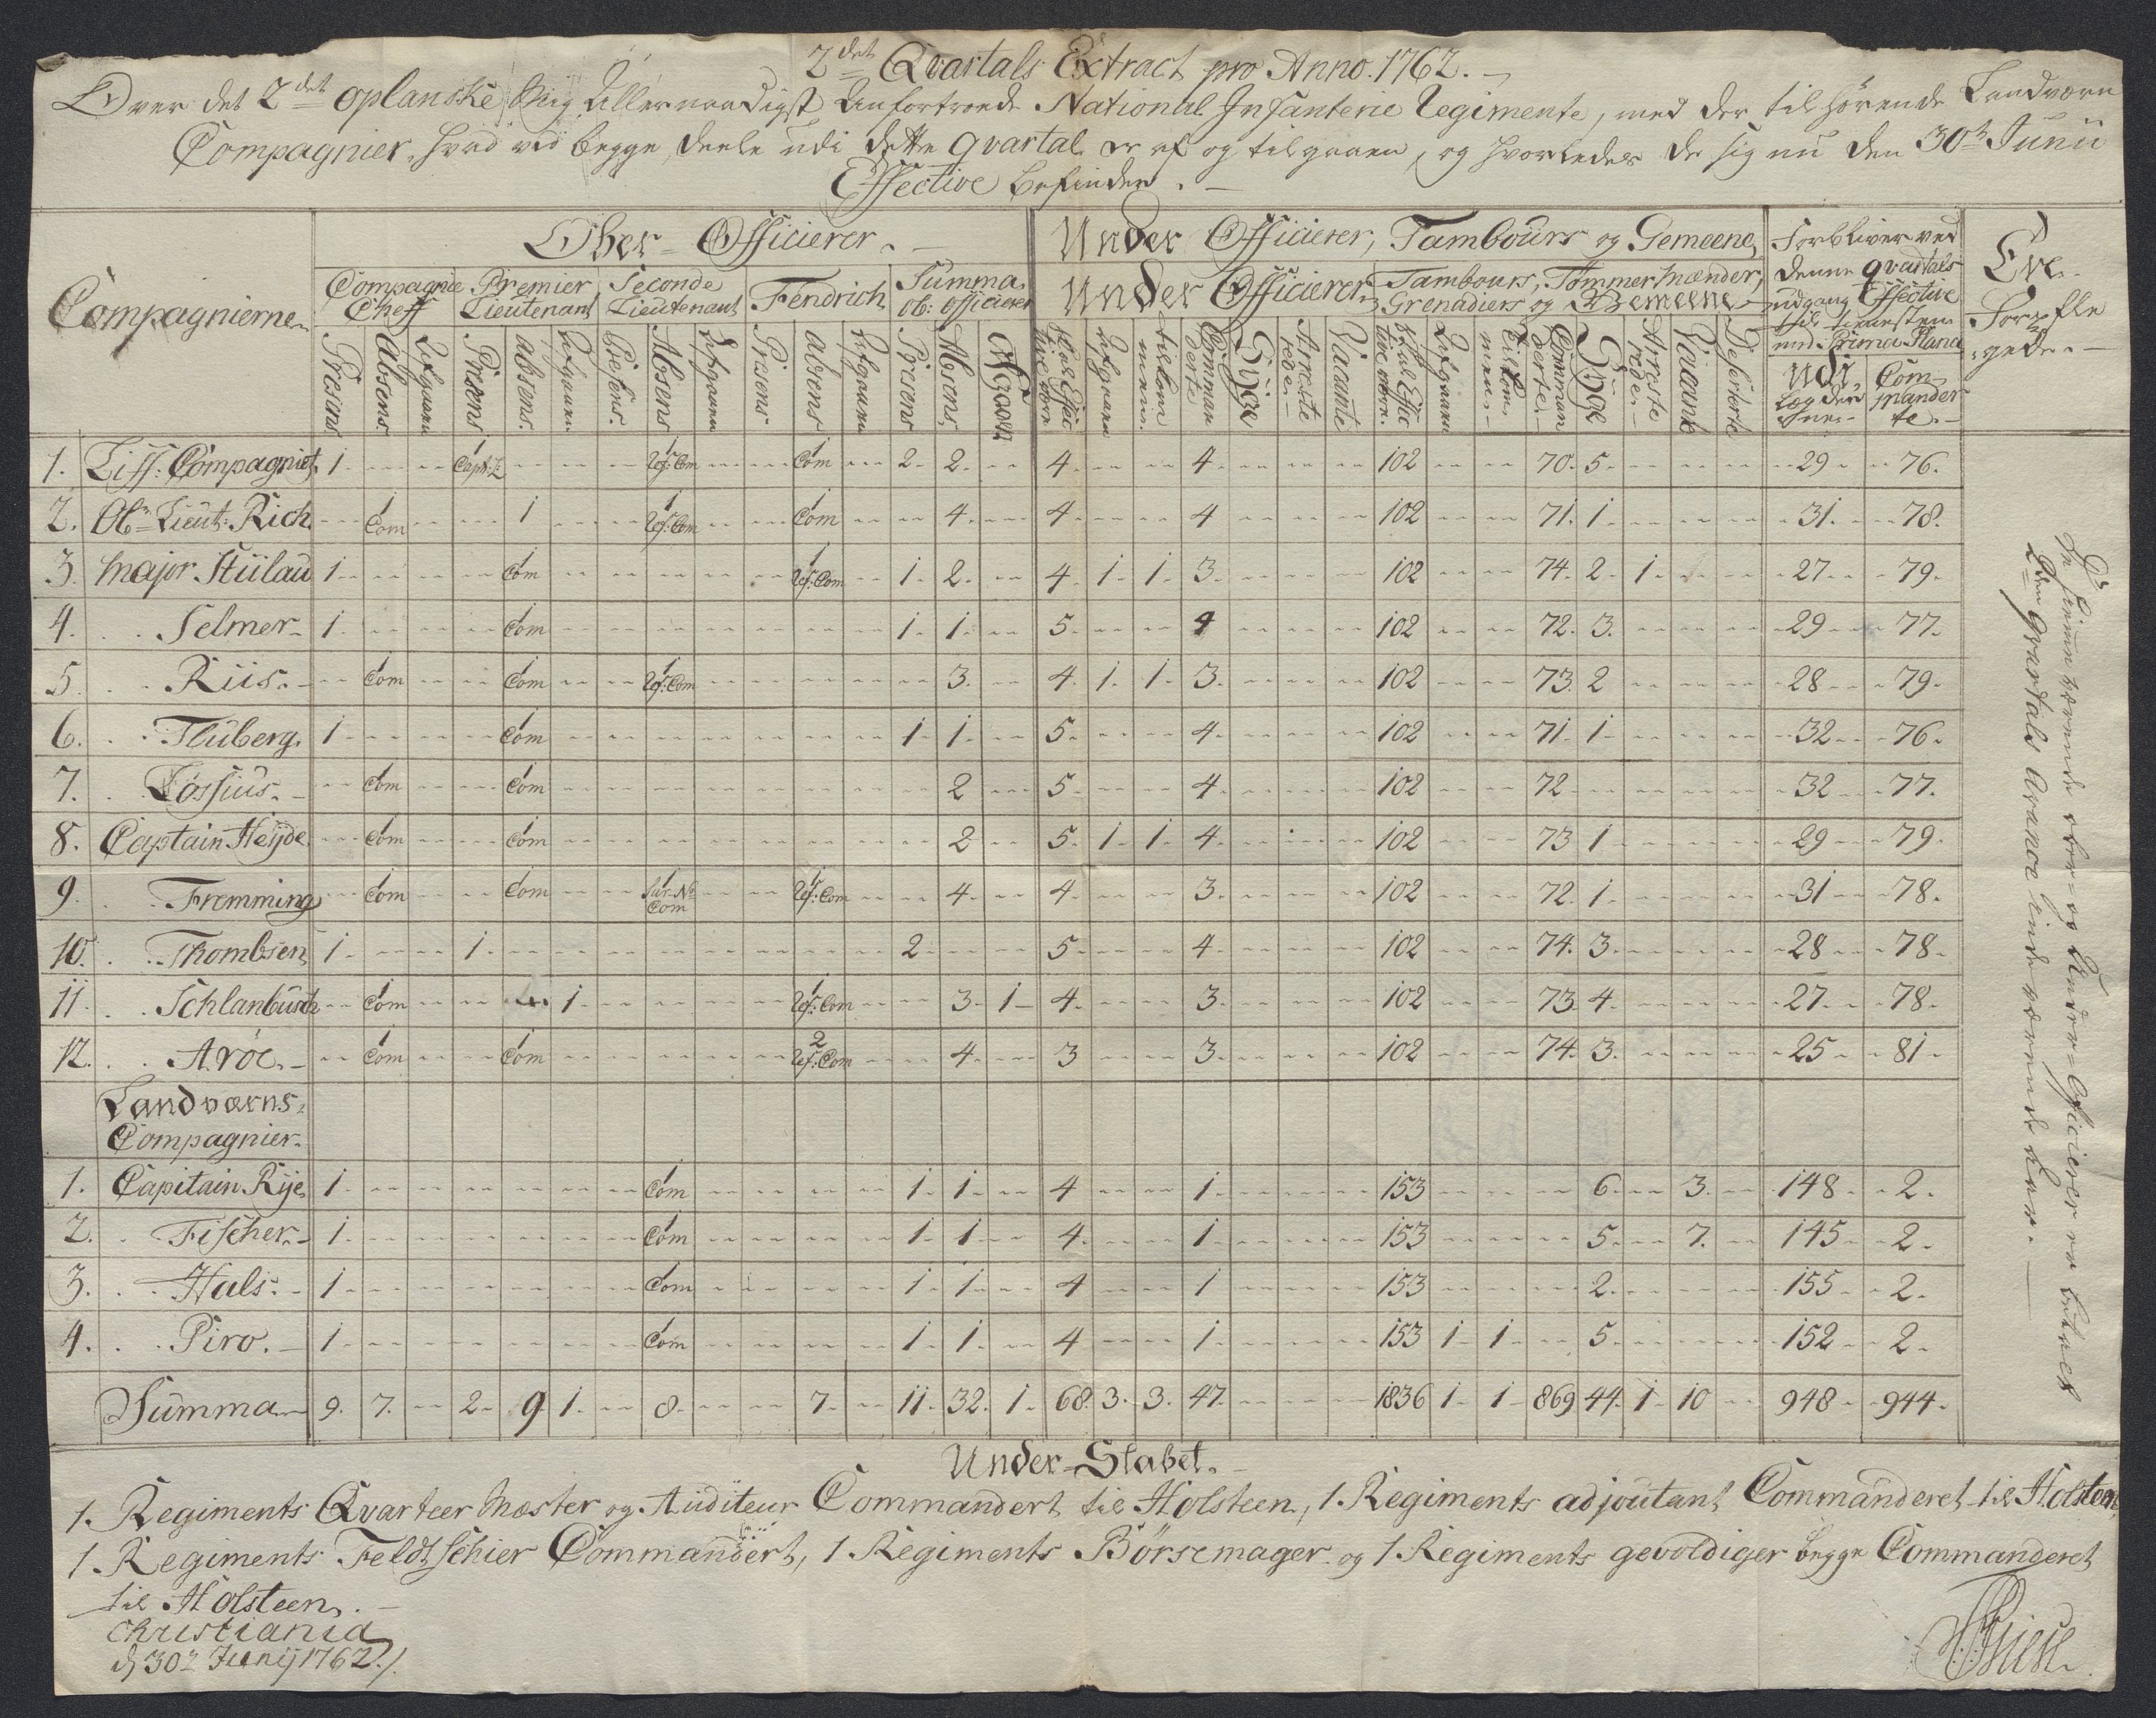 2det Qvartals Extract pro Anno. 1762.
Over det 2det Oplanske mig Allernaadigst Anfortroede National Infanterie Regimente, med der tilhörende Landværn
Compagnier, hvad ved begge deele udi dette qvartal er af og tilgaaen, og hvorledes de sig nu den 30te Junii
Effective befinder.
Compagnierne
Ober Officierer.
Under Officierer, Tambours og Gemeene
Forbliver ved denne qvartals udgang Effective til tienesten med Prima Plana
Compagnie Cheff
Premier Lieutenant
Seconde Lieutenant
Fendrich
Summa ob: officierer
Under Officierer
Tambours, Tømmermænder, Grenadiers og Gemeene
Presens Absens Afgaaen Presens Absens Afgaaen Presens Absens Afgaaen Presens Absens Afgaaen Presens Absens
Skal Effective være Afgaaen tilkommen Commanderte Syge Arresterede Vacante
Skal Effective være Afgaaen tilkommen Commanderte Syge Arresterede Vacante Deserterte
Udi Lægderne Commanderte
1. Liff: Compagniet 1 1 Capt: L: 1 Ref: Com 1 Com 2 2 4 4 102 70 5 29 76
2. Obr Lieut: Rich 1 Com 1 1 Ref: Com 1 Com 4 4 4 102 71 1 31 78
3. Major Stülau 1 1 Com 1 Ref: Com 1 2 4 1 1 3 102 74 2 1 27 79
4. Selmer 1 1 Com 1 1 5 4 102 72 3 29 77
5. Riis 1 Com 1 Com 1 Ref: Com 3 4 1 1 3 102 73 2 28 79
6. Fluberg 1 1 Com 1 1 5 4 102 71 1 32 76
7. Lossius 1 Com 1 Com 2 5 4 102 72 32 77
8. Captain Heyde 1 Com 1 Com 2 5 1 1 4 102 73 1 29 79
9. Fremming 1 Com 1 Com 1 Com 1 Ref: Com 4 4 3 102 72 1 31 78
10. Thombsen 1 1 2 5 4 102 74 3 28 78
11. Schlanbusch 1 Com 1 1 Ref: Com 3 1 4 3 102 73 4 27 78
12. Aröe 1 Com 1 Com 2 Ref: Com 4 3 3 102 74 3 25 81
Landværns Compagnier
1. Capitain Rye 1 1 Com 1 1 4 1 153 6 3 148 2
2. Fischer 1 1 Com 1 1 4 1 153 5 7 145 2
3. Hals 1 1 Com 1 1 4 1 153 2 155 2
4. Piro 1 1 Com 1 1 4 1 153 1 1 5 152 2
Summa 9 7 2 9 1 8 7 11 32 1 68 3 3 47 1836 1 1 869 44 1 10 948 944
De hiemværende Ober- og Under-Officierer er
2den qvartals
Under-Stabet.
1. Regiments Qvarteer Mæster og Auditeur Commandert til Holsteen, 1. Regiments adjoutant Commanderet til Holsteen,
1. Regiments Feldtschier Commandert, 1 Regiments Börsemager og 1 Regiments gevoldiger begge Commanderet
til Holsteen.
Christiania
d 30te Junij 1762.